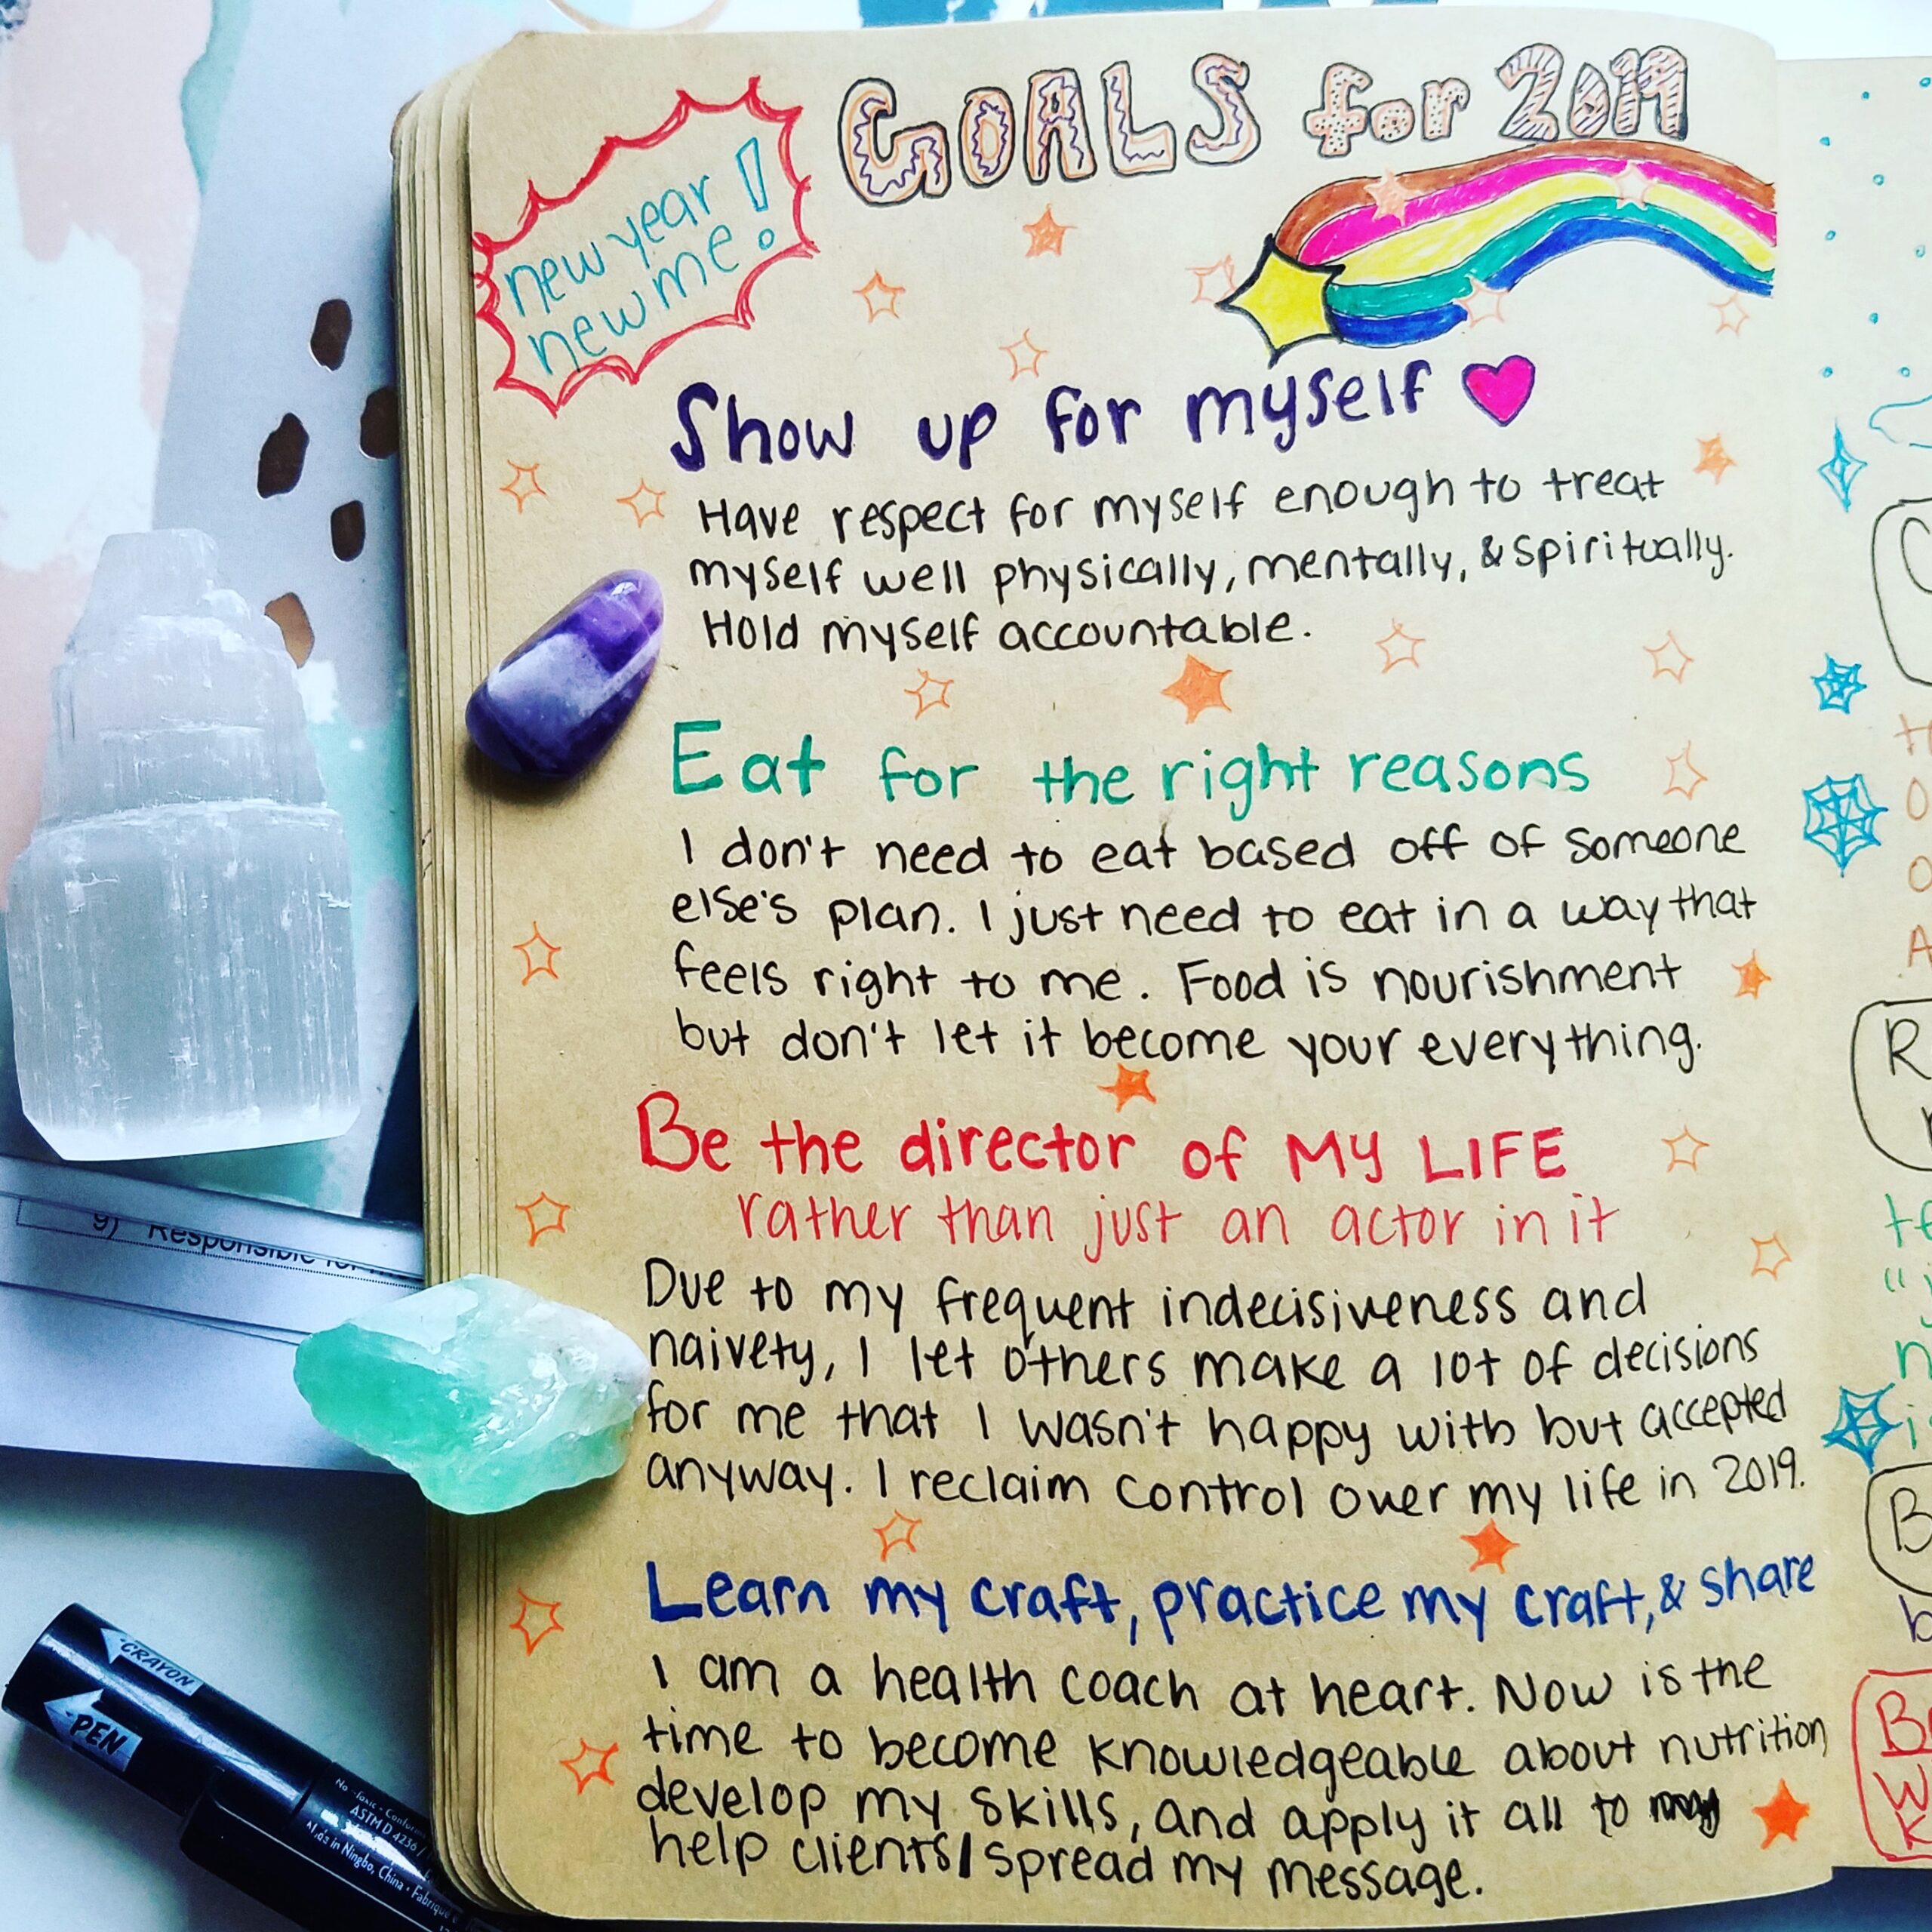 GOALS for 2019
new year
new me!
Show up for myself
Have respect for myself enough to treat
myself well physically, mentally, & spiritually.
Hold myself accountable.
Eat for the right reasons
I don't need to eat based off of someone
else's plan. I just need to eat in a way that
feels right to me. Food is nourishment
but don't let it become your everything.
Be the director of MY LIFE
rather than just an actor in it
Due to my frequent indecisiveness and
naivety, I let others make a lot of decisions
for me that I wasn't happy with but accepted
anyway. I reclaim control over my life in 2019.
Learn my craft, practice my craft, & share
I am a health coach at heart. Now is the
time to become knowledgeable about nutrition
develop my skills, and apply it all to
help clients/spread my message.
9) Responsible for
CRAYON
PEN
ASTM D 4236 /
Made in Ningbo, China • Fabriqué
H
O
O
A
R
B
b
W
K